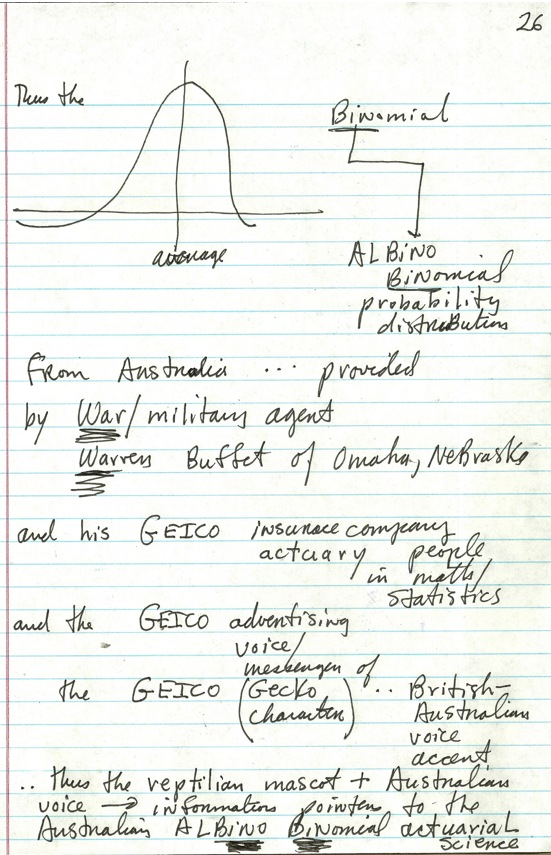 26
Thus the
average
Binomial
ALBiNO
BiNOMial
probability
distribution
From Australia ... provided
by War/military agent
Warren Buffet of Omaha, NeBraska
and his GEICO insurance company
actuary people
in math/
statistics
and the GEICO advertising
voice/
messenger of
the GEICO (Gecko character) .. British-
Australian
voice
accent
.. thus the reptilian mascot + Australian
voice → information pointer to the
Australian ALBiNO BiNOMial actuarial
science